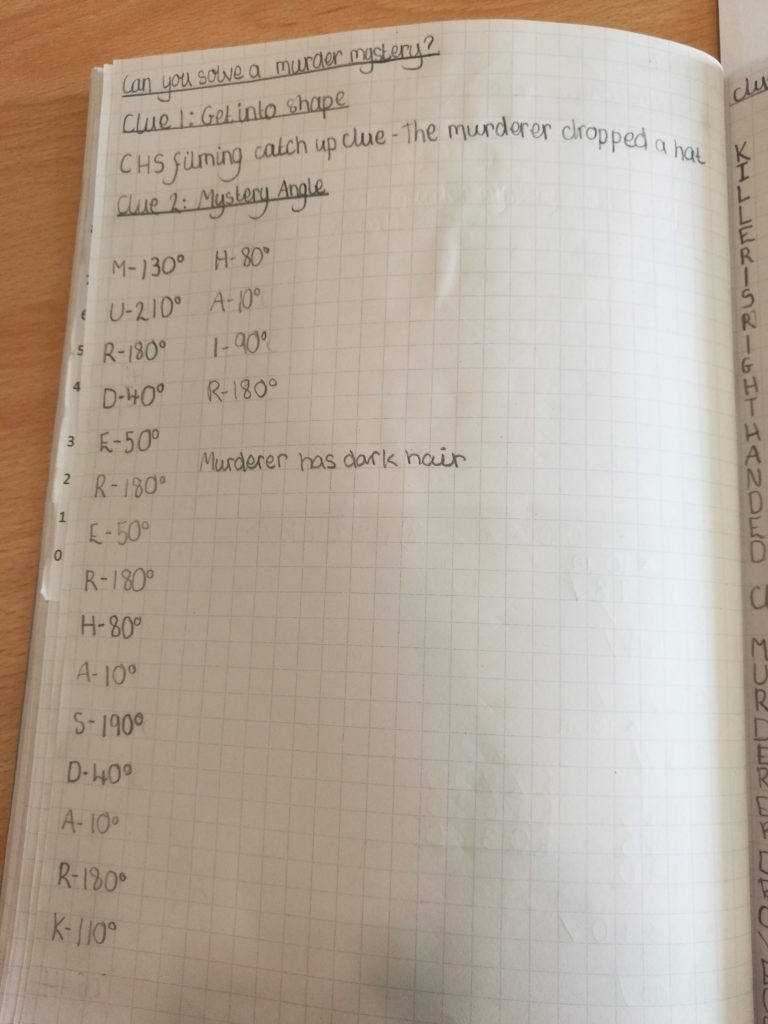 Can you solve a murder mystery?
Clue 1: Get into shape
CHS filming catch up clue - The murderer dropped a hat
Clue 2: Mystery Angle
M-130° H-80°
U-210° A-10°
R-180° I-90°
D-40° R-180°
E-50°
Murderer has dark hair
R-180°
E-50°
R-180°
H-80°
A-10°
S-190°
D-40°
A-10°
R-180°
K-110°
6
5
4
3
2
1
0
K
I
L
L
E
R
I
S
R
I
G
H
T
H
A
N
D
E
D
M
U
R
D
E
R
E
R